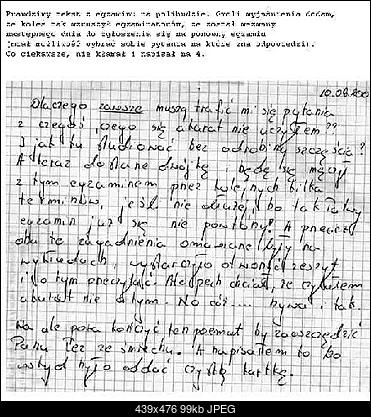 Prawdziwy tekst z egzaminu na polibudzie. Gwoli wyjaśnienia dodam,
że koleś tak wzruszył egzaminatorów, że został wezwany
następnego dnia do zgłoszenia się na ponowny egzamin
(miał możliwość wybrać sobie pytania na które zna odpowiedzi).
Co ciekawsze, nie kłamał i napisał na 4.
10.09.200
Dlaczego zawsze muszą trafić mi się pytania
z czegoś, czego się akurat nie uczyłem??
I jak tu studiować bez odrobiny szczęścia?
A teraz dostanę dwójkę będę się męczył
z tym egzaminem przez kolejnych kilka
terminów, jeśli nie dłużej, bo tak łatwy
egzamin już się nie powtórzy! A przecież
oba te zagadnienia omawiane były na
wykładach, wystarczyło otworzyć zeszyt
i o tym przeczytać. Ale pech chciał, że czytałem
akurat nie o tym. No cóż.... bywa i tak.
No ale pora kończyć ten poemat by zaoszczędzić
Panu łez ze śmiechu. A napisałem to bo
wstyd było oddać czystą kartkę.
439x476 99kb JPEG